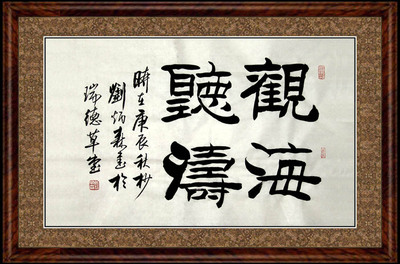 觀海
聽濤
時在庚辰秋杪
劉炳森書於
瑞德草堂